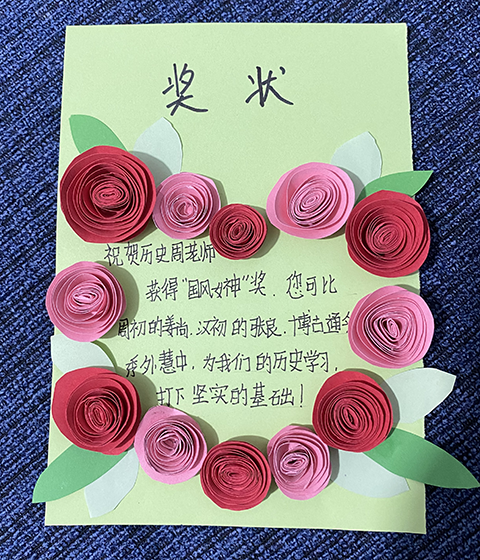 奖 状
祝贺历史周老师
获得“国风女神”奖.您可比
周初的姜尚.汉初的张良.博古通今
秀外慧中,为我们的历史学习,
打下坚实的基础!